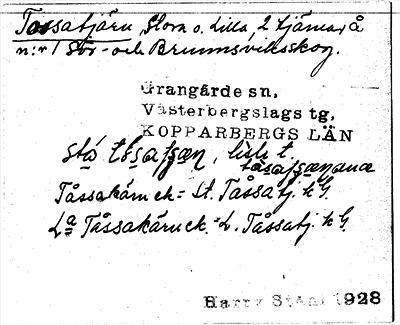 Tåssatjärn, Stora o. Lilla, 2 tjärnar å
n:r 1 Stor- och Brunnsviksskog.
Grangärde sn,
Västerbergslags tg,
KOPPARBERGS LÄN
, lisle t.
Tåssakäruck = St. Tåssatj. k G.
La Tåssakäruck = L. Tåssatj. k G.
Harry Ståhl 1928